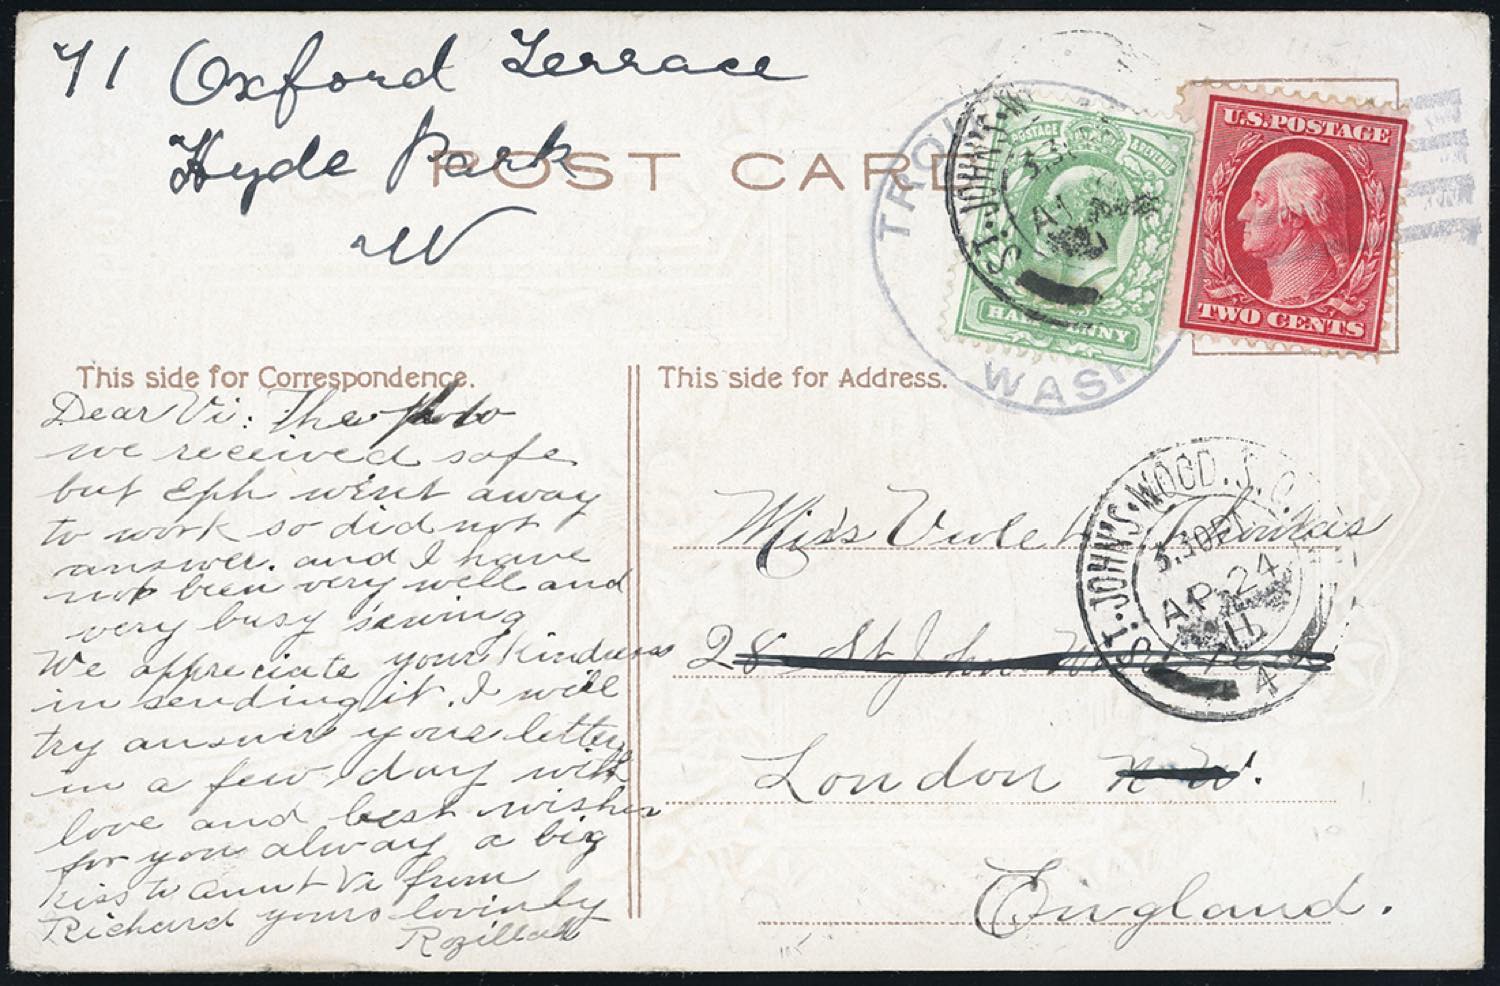 71 Oxford Terrace
Hyde Park
W
POST CARD
TROU
WASH
ST. JOHN'S. W
3.3
AP
POSTAGE & REVENUE
HALFPENNY
U.S. POSTAGE
TWO CENTS
This side for Correspondence.
Dear Vi: The photo
we received safe
but Eph went away
to work so did not
answer. and I have
not been very well and
very busy sewing
We appreciate your kindness
in sending it. I will
try answer your letter
in a few day with
love and best wishes
for you alway a big
kiss to aunt Vi from
Richard yours lovinly
This side for Address.
Miss Violet Thomas
28 St John Wood
London N.W.
England.
ST. JOHN'S. WOOD. S.O.
3.30PM
AP 24
11
4